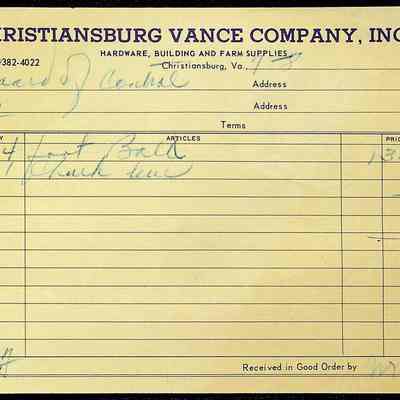 CHRISTIANSBURG VANCE COMPANY, INC
HARDWARE, BUILDING AND FARM SUPPLIES
382-4022
Christiansburg, Va.,
Central
Address
Address
Terms
ARTICLES
PRI
4 foot Ball
Chalk line
Received in Good Order by